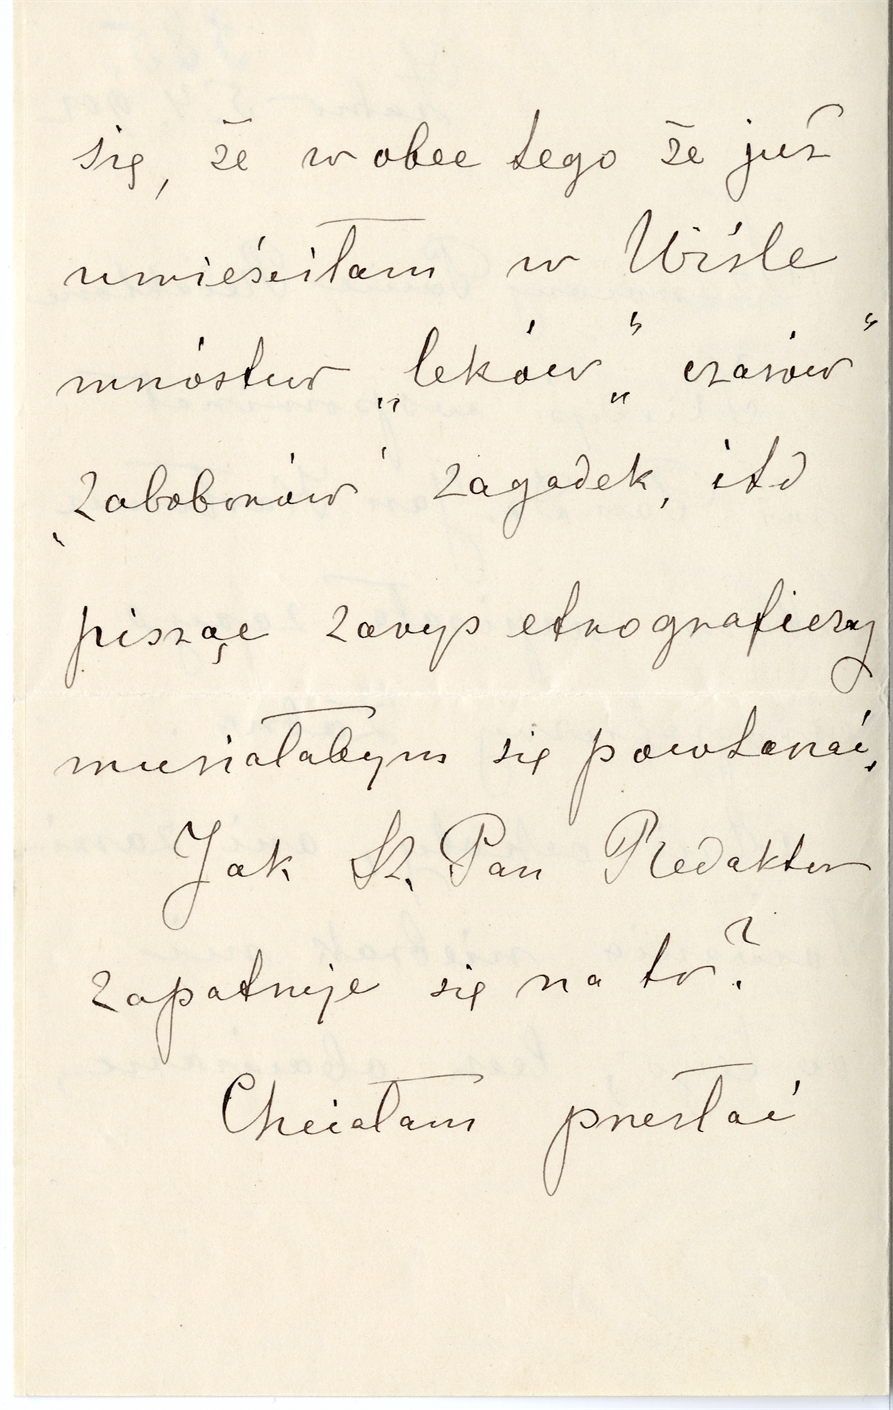 się, że wobec tego że już
umieściłam w Wiśle
mnóstwo „leków” „czarów”
„zabobonów” zagadek, itd
pisząc zarys etnograficzny
musiałabym się powtarzać.
Jak Sz. Pan Redaktor
zapatruje się na to?
Chciałam przesłać